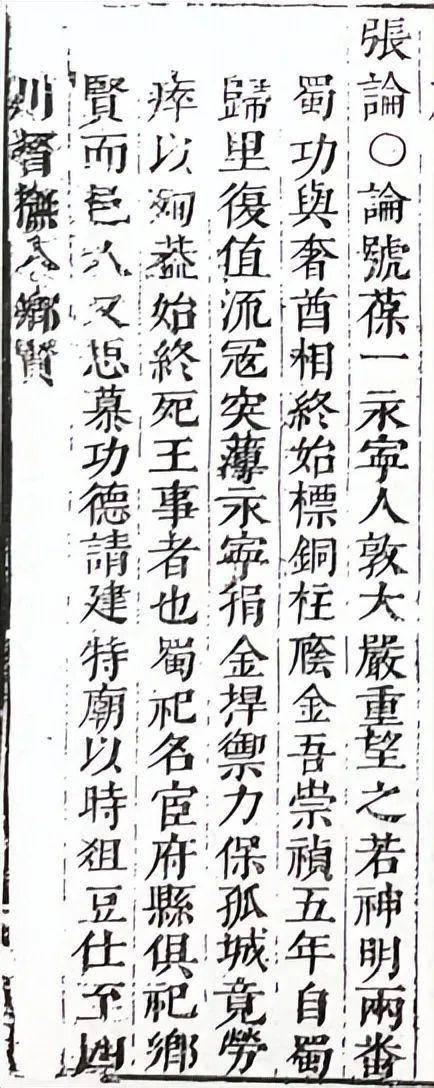 張論○論號葆一永寧人敦大嚴重望之若神明兩番
蜀功與奢酋相終始標銅柱廕金吾崇禎五年自蜀
歸里復值流冦突薄永寧捐金捍禦力保孤城竟勞
瘁以殉葢始終死王事者也蜀祀名宦府縣俱祀鄉
賢而邑人又思慕功德請建特廟以時俎豆仕至四
川督撫入鄉賢